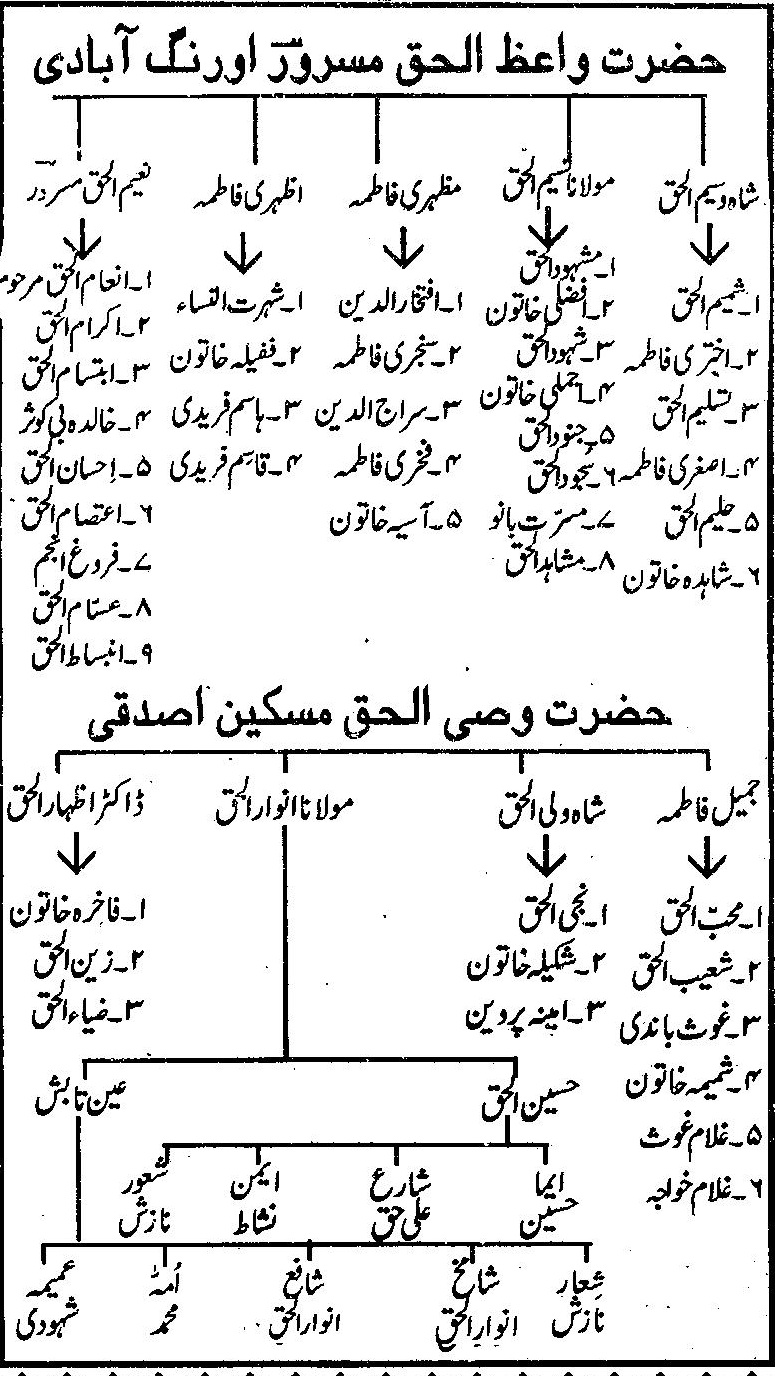 حضرت واعظ الحق مسرورؔ اورنگ آبادی
شاہ وسیم الحق
۱۔ شمیم الحق
۲۔ اختری فاطمہ
۳۔ تسلیم الحق
۴۔ اصغری فاطمہ
۵۔ حلیم الحق
۶۔ شاہدہ خاتون
مولانا نسیم الحق
۱۔ مشہود الحق
۲۔ افضلی خاتون
۳۔ شہود الحق
۴۔ اجملی خاتون
۵۔ جنود الحق
۶۔ سجود الحق
۷۔ مسرّت بانو
۸۔ مشاہد الحق
مظہری فاطمہ
۱۔ افتخار الدین
۲۔ سنجری فاطمہ
۳۔ سراج الدین
۴۔ فخری فاطمہ
۵۔ آسیہ خاتون
اظہری فاطمہ
۱۔ شہرت النساء
۲۔ فضیلہ خاتون
۳۔ ہاسم فریدی
۴۔ قاسم فریدی
نعیم الحق مسرور
۱۔ انعام الحق مرحوم
۲۔ اکرام الحق
۳۔ ابتسام الحق
۴۔ خالدہ بی کوثر
۵۔ احسان الحق
۶۔ اعتصام الحق
۷۔ فروغ انجم
۸۔ عسّام الحق
۹۔ انبساط الحق
حضرت وصی الحق مسکین اصدقی
جمیل فاطمہ
۱۔ محبّ الحق
۲۔ شعیب الحق
۳۔ غوث باندی
۴۔ شمیمہ خاتون
۵۔ غلام غوث
۶۔ غلام خواجہ
شاہ ولی الحق
۱۔ نجی الحق
۲۔ شکیلہ خاتون
۳۔ امینہ پروین
مولانا انوار الحق
ڈاکٹر اظہار الحق
۱۔ فاخرہ خاتون
۲۔ زین الحق
۳۔ ضیاء الحق
حسین الحق
عین تابش
ایما
حسین
شارع
علی حق
ایمن
نشاط
شعور
نازش
شِعار
نازش
شامخ
انوار الحق
شافع
انوار الحق
اُمّہ
محمد
عمیمہ
شہودی